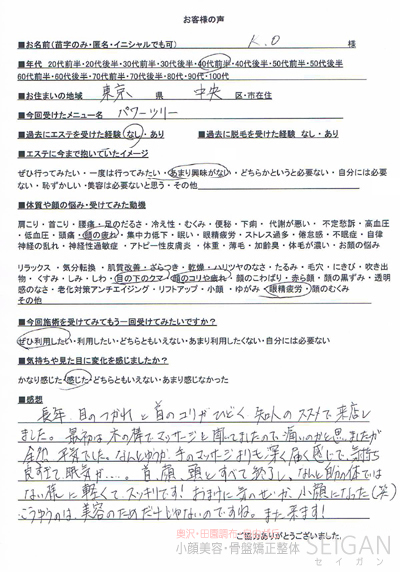 お客様の声
■お名前(苗字のみ・匿名・イニシャルでも可) K.O 様
■年代 20代前半・20代後半・30代前半・30代後半・40代前半・40代後半・50代前半・50代後半
60代前半・60代後半・70代前半・70代後半・80代・90代・100代
■お住まいの地域 東京 県 中央 区・市在住
■今回受けたメニュー名 パワーツリー
■過去にエステを受けた経験 なし・あり ■過去に脱毛を受けた経験 なし・あり
■エステに今まで抱いていたイメージ
ぜひ行ってみたい・一度は行ってみたい・あまり興味がない・どちらかというと必要ない・自分には必要
ない・恥ずかしい・美容は必要ないと思う・その他
■体質や顔の悩み・受けてみた動機
肩こり・首こり・腰痛・足のだるさ・冷え性・むくみ・便秘・下痢・代謝が悪い・不定愁訴・高血圧
・低血圧・頭痛・顔の疲れ・集中力低下・眠い・眼精疲労・ストレス過多・倦怠感・不眠症・自律
神経の乱れ・神経性過敏症・アトピー性皮膚炎・体重・薄毛・加齢臭・体毛が濃い・お顔の悩み
リラックス・気分転換・肌質改善・ざらつき・乾燥・ハリツヤのなさ・たるみ・毛穴・にきび・吹き出
物・くすみ・しみ・しわ・目の下のクマ・顔のコリや疲れ・顔のこわばり・赤ら顔・顔の黒ずみ・透明
感のなさ・老化対策アンチエイジング・リフトアップ・小顔・ゆがみ・眼精疲労・顔のむくみ
その他
■今回施術を受けてみてもう一回受けてみたいですか?
ぜひ利用したい・利用したい・どちらともいえない・あまり利用したくない・自分には必要ない
■気持ちや見た目に変化を感じましたか?
かなり感じた・感じた・どちらともいえない・あまり感じなかった
■感想
長年、目のつかれと首のコリがひどく、知人のススメで来店し
ました。最初は木の棒でマッサージと聞いてましたので、痛いのかと思いましたが
全然平気でした。なんとゆうか手のマッサージよりも深く届く感じで、気持ち
良すぎて眠気が…。首、顔、頭とすべて終了し、なんと自分の体では
ない様に軽くてスッキリです!おまけに気のせいか、小顔になった(笑)
こうゆうのは、美容のためだけじゃないのですね。また来ます!
ご協力ありがとうございました。
奥沢・田園調布・自由が丘
小顔美容・骨盤矯正整体 SEIGAN
セイガン